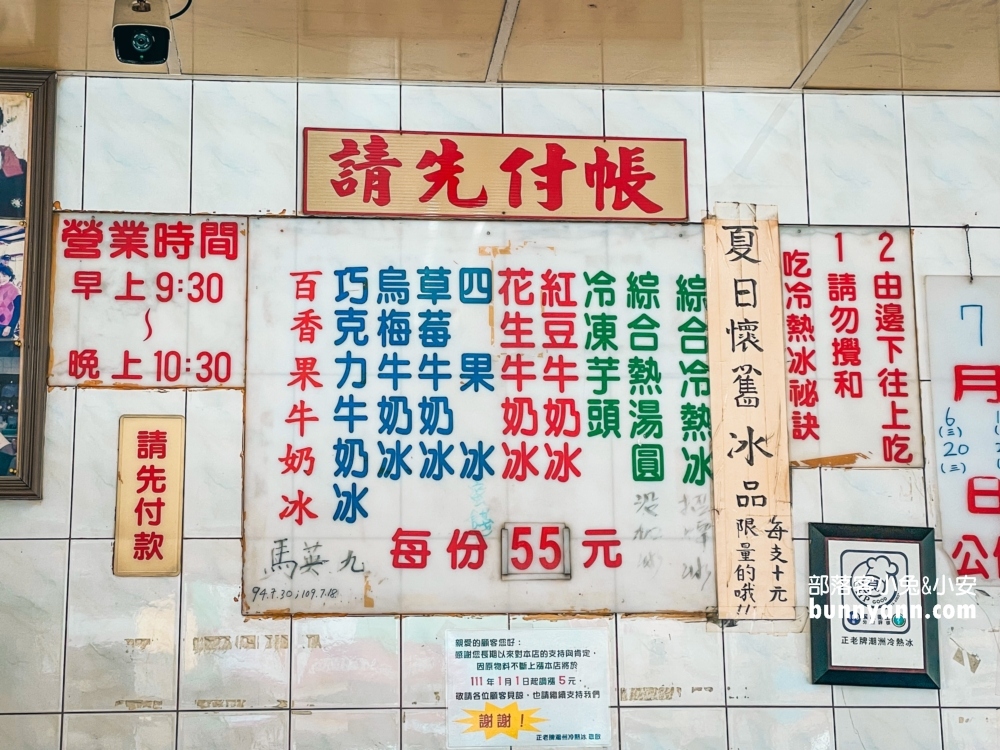 請先付帳
營業時間
早上9:30
～
晚上10:30
請先付款
綜合冷熱冰
綜合熱湯圓
冷凍芋頭
紅豆牛奶冰
花生牛奶冰
四果冰
草莓牛奶冰
烏梅牛奶冰
巧克力牛奶冰
百香果牛奶冰
每份55元
馬英九
94.7.30;109.7.18
夏日懷舊冰品
每支十元
限量的哦!!
2由邊下往上吃
1請勿攪和
吃冷熱冰祕訣
7
月
6
(三)
20
(三)
日
公
親愛的顧客您好：
感謝您長期以來對本店的支持與肯定，
因原物料不斷上漲本店將於
111年1月1日起調漲5元，
敬請各位顧客見諒，也請繼續支持我們
謝謝！
正老牌潮洲冷熱冰 敬啟
正老牌潮洲冷熱冰
部落客小兔&小安
bunnyann.com